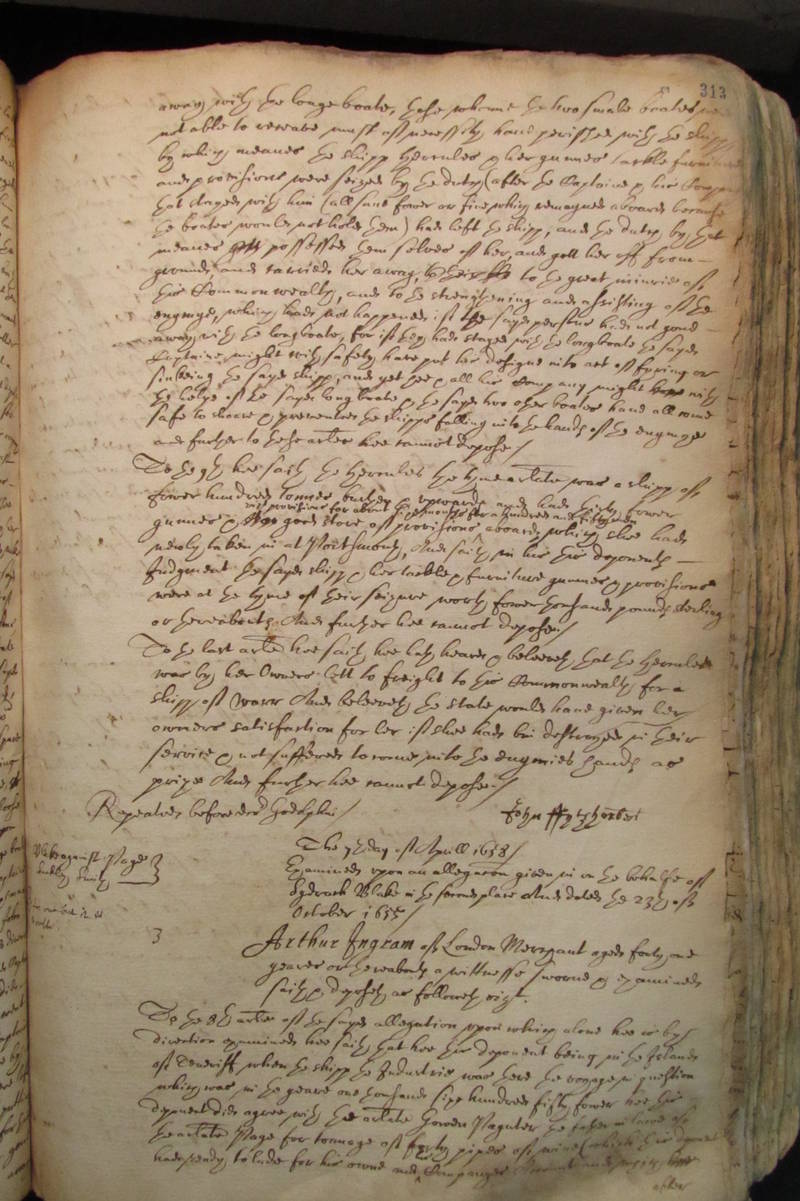 313
away with the longe boate, (the whome the two smale boates were
not able to receave must of necessity have perished with the shipp
by which meanes the shipp Hercules & her gunnes tackle furniture
and provisions were seized by the dutch (after the Captaine & his Company
that stayed with him (all save fower or five which remayned aboard because
the boates would not hold them) had left the shipp, and the dutch by that
meanes possessed them selves of her, and gott her off from
ground, and carried her away, to the great iniurie of
this Common wealth, and to the strengthening and assisting of the
enymye, which had not happened if the sayd persons had not gone
away with the longboate, for if they had stayed with the longboate the sayd
Captaine might with safety have put his designe into act of fyring or
sinking the sayd shipp, and yet hee & all his Company might with
the helpe of the sayd longboate & the sayd two other boates have all come
safe to shoare & prevented the shipps falling into the hands of the enymye
and further to this arlate hee cannot depose/
To the 9th hee saith the Hercules the tyme arlate was a shipp of
fower hundred tonnes burthen & upwards and had thirty fower
with provisions for about six moneths for a hundred and fifty men
gunnes & good store of provisions aboard, which shee had
newly taken in at Portsmouth, And saith in his this deponents
Judgment the sayd shipp & her tackle & furniture gunnes & provisions
were at the tyme of their seizure worth fower thousand pounds sterling
or thereabouts, And further hee cannot depose/
To the last arlate hee saith hee hath heard & beleeveth that the Hercules
was by her Owners lett to freight to this Commonwealth for a
shipp of warr And beleeveth the state would have given her
owners satisfaction for her if shee had bin destroyed in their
service & not suffered to come into the enymies hands as
prize And further hee cannot depose/
Repeated before doctor Godolphin/
John
The 7th day of Aprill 1658/
Blake against Page
Suckley Smith
Examined upon an allegation given in on the behalfe of
Blake in the second place And dated the 23th of
October 1655/
3
Arthur Ingram of London Merchant aged forty one
yeares or thereabouts a wittnesse sworne & examined
saith & deposeth as followeth vizt.
To the 8th arlate of the sayd allegation upon which alone hee is by
direction examined hee saith that hee this deponent being in the Islands
of Teneriff when the shipp the Industrie was there the voyage in question
which was in the yeare one thousand sixx hundred fifty fower hee this
deponent did agree with the arlate Gowen Paynter the father in lawe of
the arlate Page for tonnage of forty pipes of wine (which this deponent
had ready to lade for his owne and Companyes Accompt
after